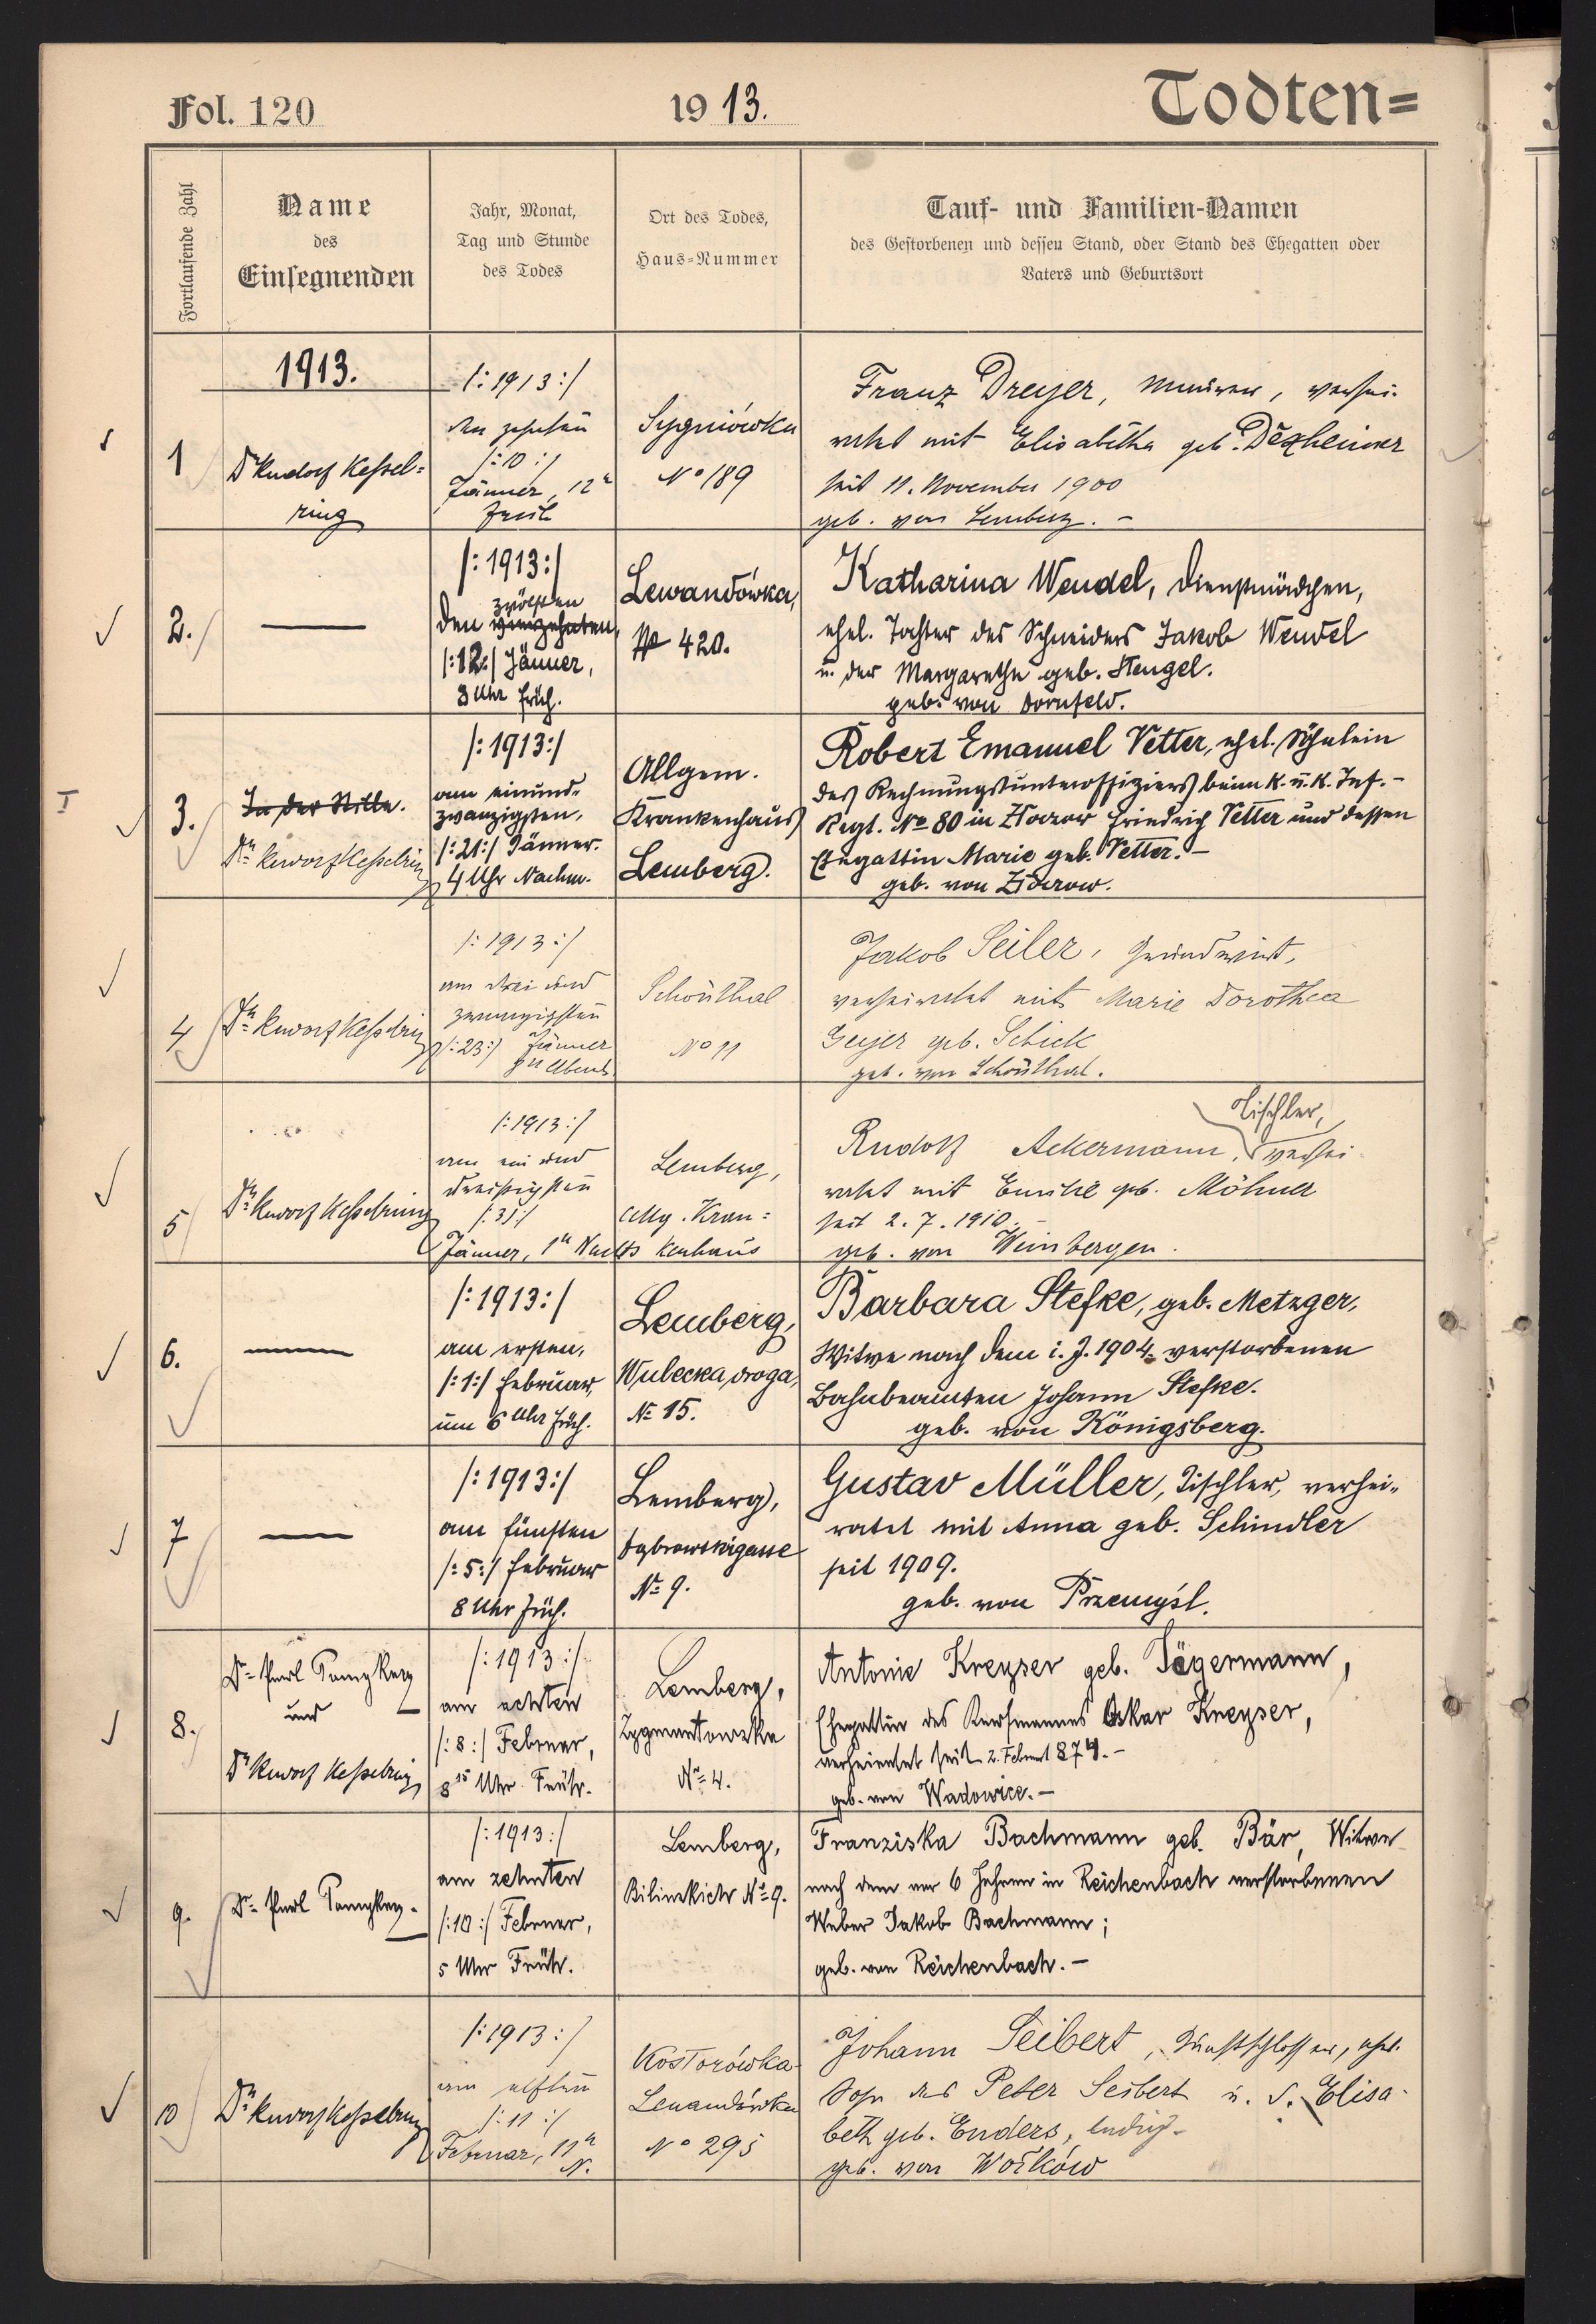 Fol. 120
1913.
Todten=
Fortlaufende Zahl
Name
des
Einsegnenden
Jahr, Monat,
Tag und Stunde
des Todes
Ort des Todes,
Haus-Nummer
Tauf- und Familien-Namen
des Gestorbenen und dessen Stand, oder Stand des Ehegatten oder
Vaters und Geburtsort
1913.
1
Dr Rudolf Kessel=
ring
/:1913:/
den zehnten
/:10:/
Jänner, 12h
früh
Sygniówka
No 189
Franz Dreyer, Maurer, verhei-
ratet mit Elisabetha geb. Dexheimer
seit 11. November 1900
geb. von Lemberg. -
2.
—
/:1913:/
zwölften
den vierzehnten,
/:12:/ Jänner,
8 Uhr früh.
Lewandówka,
No 420.
Katharina Wendel, Dienstmädchen,
ehel. Tochter des Schneiders Jakob Wendel
u. der Margarethe geb. Stengel.
geb. von Dornfeld.
3.
In der Stille.
Dr Rudolf Kesselring
/:1913:/
am einund-
zwanzigsten,
/:21:/ Jänner.
4 Uhr Nachm.
Allgem.
Krankenhaus
Lemberg.
Robert Emanuel Vetter, ehel. Söhnlein
des Rechnungsunteroffiziers beim k. u. k. Inf.-
Regt. No 80 in Złoczow Friedrich Vetter und dessen
Ehegattin Marie geb. Vetter. -
geb. von Złoczow.
4
Dr Rudolf Kesselring
/:1913:/
am drei und
zwanzigsten
/:23:/ Jänner
Abends
Schönthal
No 11
Jakob Seiler, Grundwirt,
verheiratet mit Marie Dorothea
Geyer geb. Schick
geb. von Schönthal.
5
Dr Rudolf Kesselring
/:1913:/
am ein und
dreissigsten
/:31:/
Jänner, 1h Nachts
Lemberg,
Allg. Kran=
kenhaus
Tischler,
Rudolf Ackermann, verhei-
ratet mit Emilie geb. Möhner
seit 2. 7. 1910. -
geb. von Weinbergen.
6.
—
/:1913:/
am ersten,
/:1:/ Februar,
um 6 Uhr früh.
Lemberg,
Wulecka droga,
No 15.
Barbara Stefke, geb. Metzger,
Witwe nach dem i. J. 1904 verstorbenen
Bahnbeamten Johann Stefke.
geb. von Königsberg.
7
—
/:1913:/
am fünften
/:5:/ Februar
8 Uhr früh.
Lemberg,
No 9.
Gustav Müller, Tischler, verhei-
ratet mit Anna geb. Schindler
seit 1909.
geb. von Przemyśl.
8.
Dr Karl
und
Dr Rudolf Kesselring
/:1913:/
am achten
/:8:/ Februar,
8 15 Uhr Früh.
Lemberg,
Zygmuntowska
No 4.
Antonie Kreyser geb. Jägermann,
Ehegattin des Kaufmannes Oskar Kreyser,
verheiratet seit 2. Februar 1874. -
geb. von Wadowice. -
9.
Dr
/:1913:/
am zehnten
/:10:/ Februar,
5 Uhr Früh.
Lemberg,
Bilinskich No 9.
Franziska Bachmann geb. Bär, Witwe
nach dem vor 6 Jahren in Reichenbach verstorbenen
Weber Jakob Bachmann;
geb. von Reichenbach. -
10
Dr Rudolf Kesselring
/:1913:/
am elften
/:11:/
Februar, 11h
N.
Lewandówka
No 295
Johann Seibert, Kunstschlosser, ehel.
Sohn des Peter Seibert u. d. Elisa-
beth geb. Enders, ledig -
geb. von Wołków